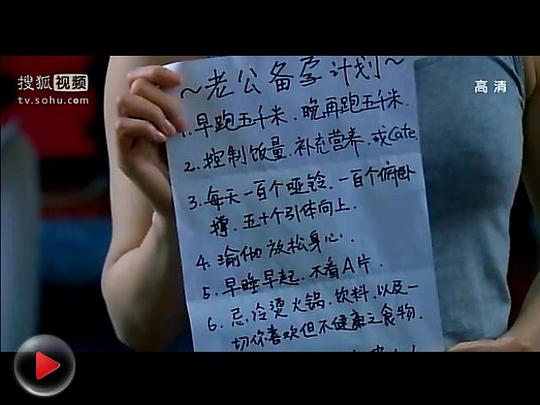 搜狐视频
tv.sohu.com
高清
~老公备孕计划~
1.早跑五千米、晚再跑五千米.
2.控制饭量.补充营养.戒Cafe.
3.每天一百个哑铃、一百个俯卧
撑、五十个引体向上.
4.瑜伽 放松身心.
5.早睡早起.不看A片.
6.忌冷烫火锅、饮料、以及一
切你喜欢但不健康之食物.